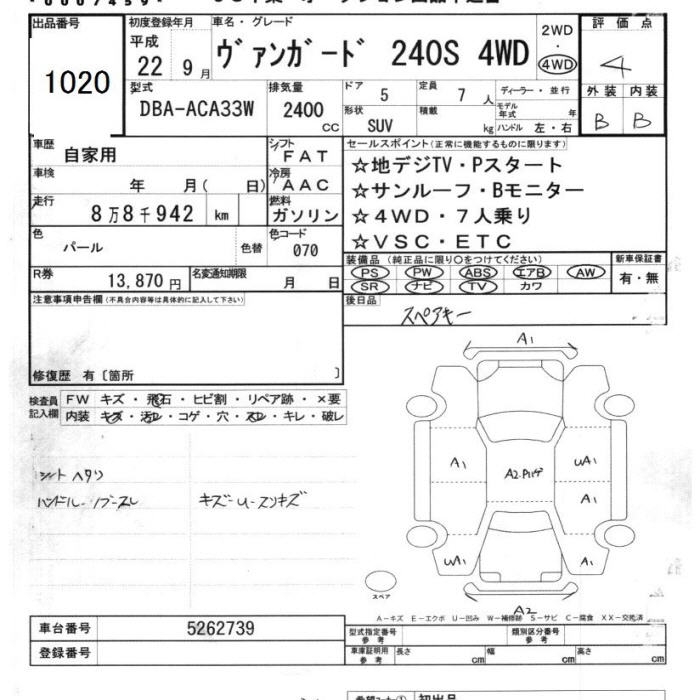 00007459
出品番号
1020
初度登録年月
平成
22 9月
車名・グレード
ヴァンガード 240S 4WD
2WD
・
4WD
評価点
4
型式
DBA-ACA33W
排気量
2400
CC
ドア
5
定員
7人
ディーラー・並行
外装 内装
B B
形状
SUV
積載
kg
モデル年式
年
ハンドル 左・右
車歴
自家用
シフト
FAT
セールスポイント(正常に機能するものに限ります)
☆地デジTV・Pスタート
☆サンルーフ・Bモニター
☆4WD・7人乗り
☆VSC・ETC
車検
年 月( 日)
冷房
AAC
走行
8万8千942 km
燃料
ガソリン
色
パール
色替
色コード
070
装備品(純正品に限り○をつけてください)
PS PW ABS エアB AW
SR ナビ TV カワ
新車保証書
有・無
R券
13,870円
名変通知期限
月 日
後日品
スペアキー
注意事項申告欄(不具合内容等は具体的に記入して下さい)
修復歴 有〔箇所 〕
検査員
記入欄
FW キズ・飛石・ヒビ割・リペア跡・×要
内装 キズ・汚れ・コゲ・穴・スレ・キレ・破レ
シートヘタリ
ハンドル・ノブースレ
キズーU-スリキズ
A1
A1
UA1
A1
UA1
A1
A2
スペア
A-キズ E-エクボ U-凹み W-補修跡 S-サビ C-腐食 XX-交換済
車台番号
5262739
登録番号
型式指定番号
参考
類別区分番号
参考
車庫証明用
参考
長さ cm
幅 cm
高さ cm